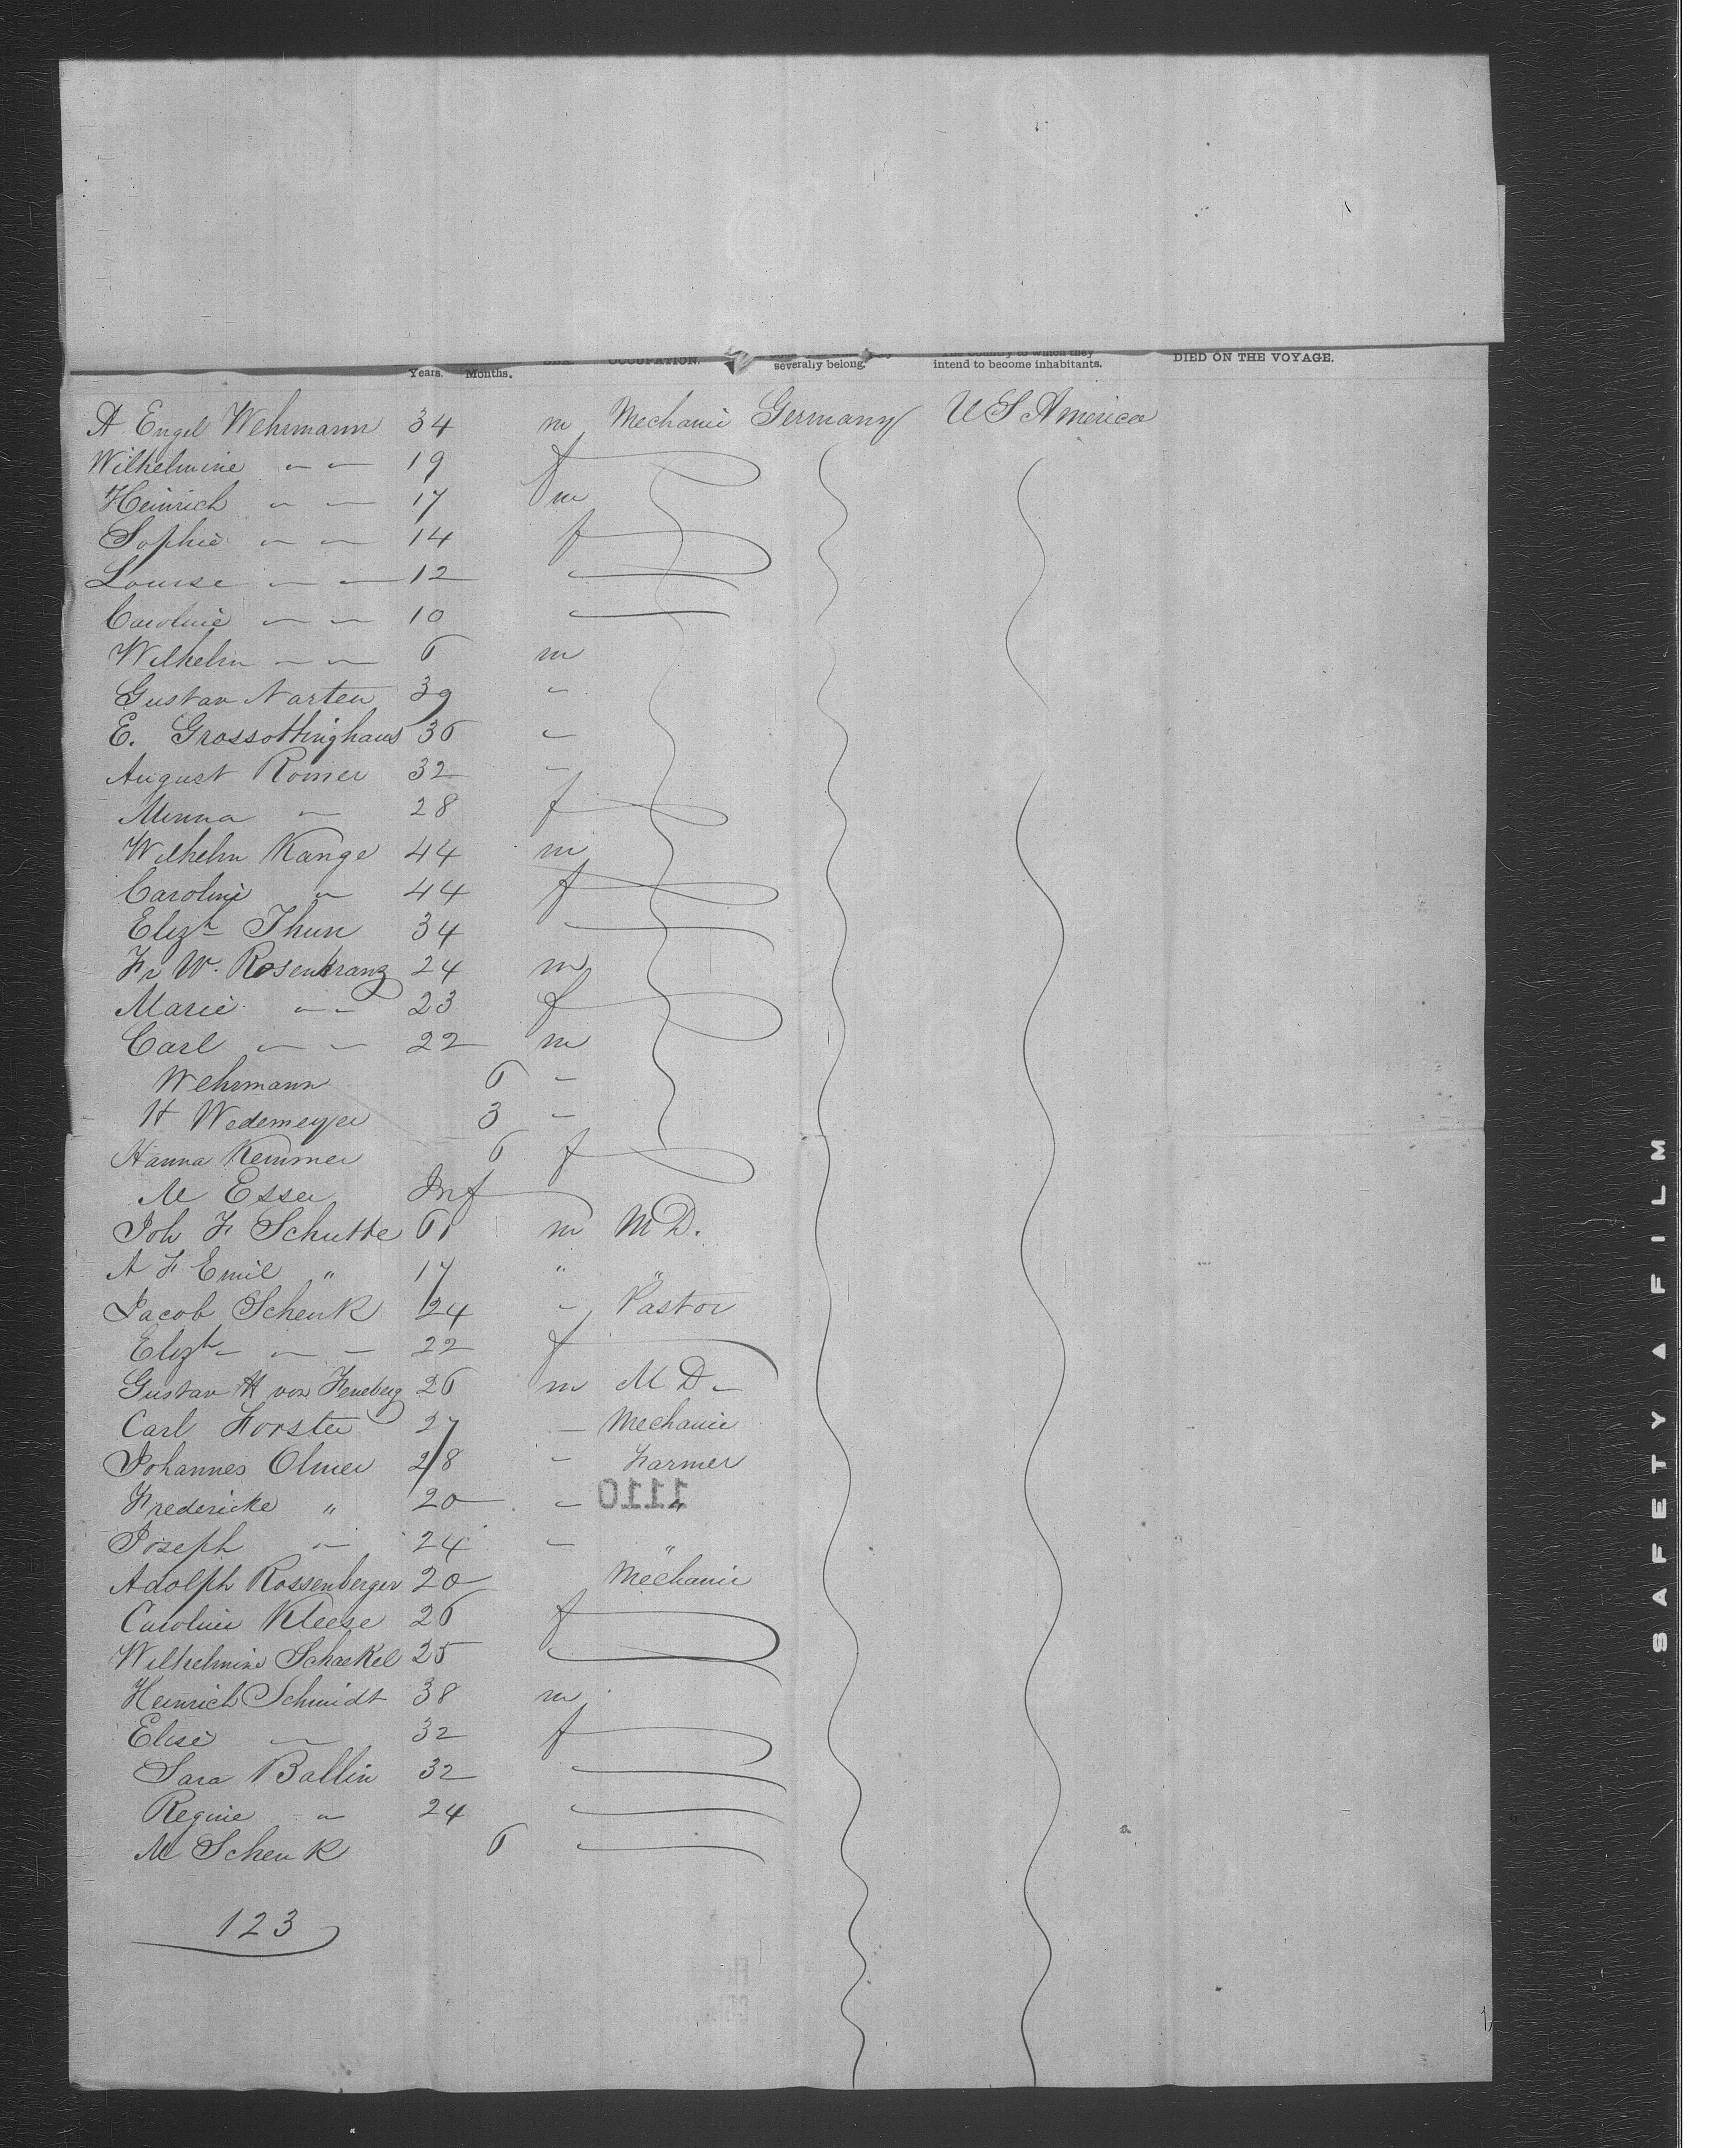 Years. Months. OCCUPATION. severally belong. The country to which they intend to become inhabitants. DIED ON THE VOYAGE.
A Engel Wehrmann 34 m Mechanic Germany U S America
Wilhelmine " " 19 f
Heinrich " " 17 m
Sophie " " 14 f
Louise " " 12
Caroline " " 10
Wilhelm " " 6 m
Gustav Narten 39 "
E. Grassottinghaus 36 "
August Romer 32 "
Minna " 28 f
Wilhelm Kange 44 m
Caroline " 44 f
Elizth Thun 34
Fr W. Rosenkranz 24 m
Marie " " 23 f
Carl " " 22 m
Wehrmann 6 "
H Wedemeyer 3 "
Hanna Kemmer 6 f
M Esser Inf
Joh F Schutte 61 m M D.
A F Emil " 17 " "
Jacob Schenk 24 " Pastor
Elizth " " 22 f
Gustav H von Feneberg 26 m M D
Carl Forster 27 " Mechanic
Johannes Olmer 28 " Farmer
Fredericke " 20 " "
1110
Joseph " 24 " "
Adolph Rossenberger 20 Mechanic
Caroline Kleese 26 f
Wilhelmine Schaekel 25
Heinrich Schmidt 38 m
Elise " 32 f
Sara Ballin 32
Regine " 24
M Schenk 6
123
SAFETY A FILM